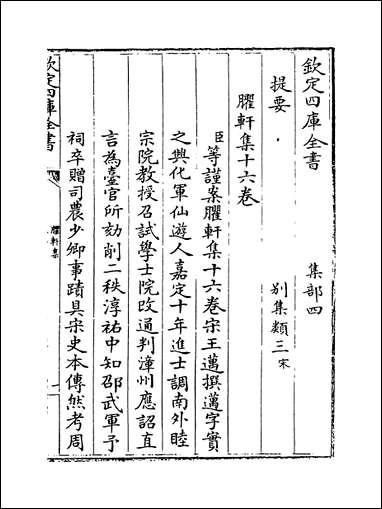 欽定四庫全書
集部四
提要
別集類三宋
臞軒集十六卷
臣等謹案臞軒集十六卷宋王邁撰邁字實
之興化軍仙遊人嘉定十年進士調南外睦
宗院教授召試學士院改通判漳州應詔直
言為臺官所劾削二秩淳祐中知邵武軍予
祠卒贈司農少卿事蹟具宋史本傳然考周
欽定四庫全書
臞軒集
一